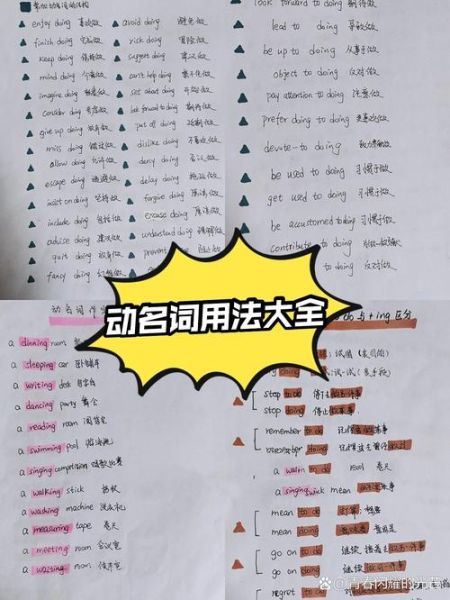 enjoy doing 喜欢做
finish doing 完成做
keep doing 保持做
mind doing 介意做
imagine doing 想象做
consider doing 考虑做
give up doing 放弃做
miss doing 错过做
allow doing 允许做
escape doing 逃避做
insist on doing 坚持做
include doing 包括做
advise doing 建议做
quit doing 放弃做
fancy doing
avoid doing 避免做
risk doing 冒险做
suggest doing 建议做
can't help doing 禁不住做
set about doing 开始做
look forward to doing 期待做
put off doing 推迟做
dislike doing 不喜欢做
deny doing 否认做
delay doing 拖延做
forgive doing 原谅做
excuse doing 原谅做
understand doing 理解做
prevent
look forward to doing 期待做
lead to doing 导致做
be up to doing 从事于做
object to doing 反对做
pay attention to doing 注意做
prefer doing to doing
devote to doing
be used to doing 习惯于做
get used to doing 习惯于做
be accustomed to doing 习惯于做
contribute to doing
to doing 反对做
动名词用法大全
动名词作
a dinning room
a sleeping car 卧铺车
a writing desk 写字台
a dancing party 舞会
a reading room 阅览室
a swimming pool 游泳池
a singing competition 唱歌比赛
a walking stick 拐杖
a washing machine 洗衣机
a measuring tape 卷尺
a meeting room 会议室
a waiting room 候车室
to do 与 + ing 区分
stop to do 停下做另一件事
stop doing 停止做某事
remember to do
remember doing
mean
mean to do 打算,想做
mean doing 意味着
go on to do 继续
go on doing 继续
regret to do
@青春闪耀的光芒